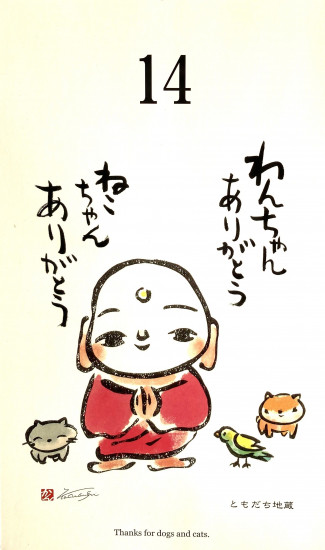 14
わんちゃん
ありがとう
ねこ
ちゃん
ありがとう
ともだち地蔵
Thanks for dogs and cats.